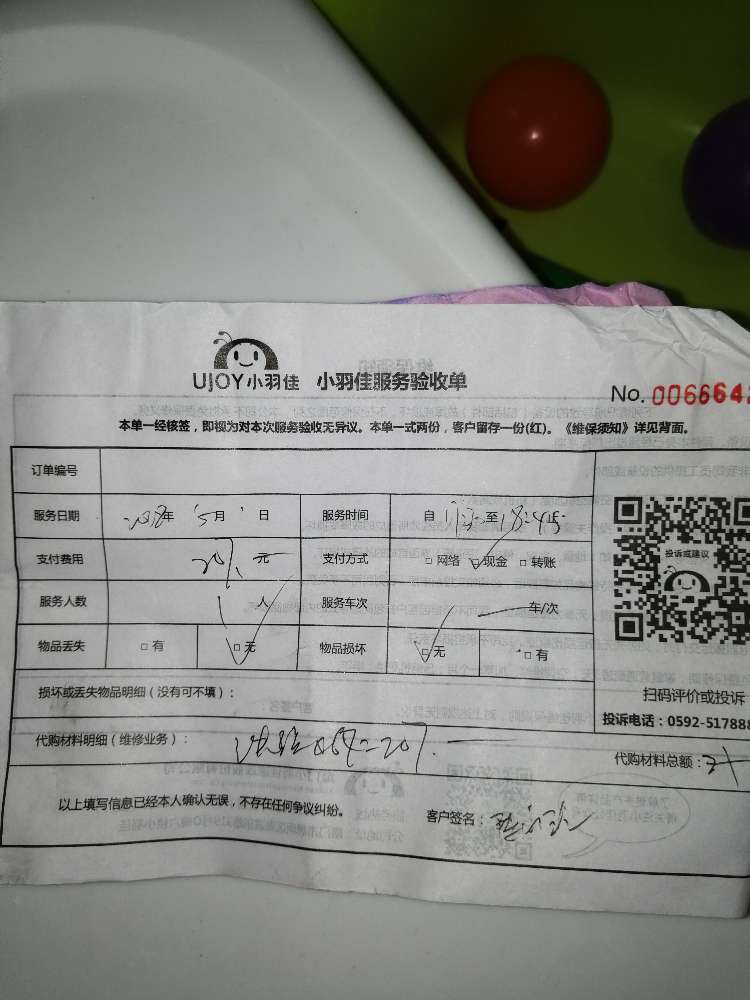 UJOY小羽佳 小羽佳服务验收单
No. 006664
本单一经核签，即视为对本次服务验收无异议。本单一式两份，客户留存一份(红)。《维保须知》详见背面。
订单编号
服务日期 2018年 5月 1日 服务时间 自 至 18:45
支付费用 201.元 支付方式 □网络 □现金 □转账
服务人数 1人 服务车次 车/次
物品丢失 □有 □无 物品损坏 □无 □有
投诉或建议
损坏或丢失物品明细（没有可不填）：
扫码评价或投诉
投诉电话：0592-517888
代购材料明细（维修业务）：
代购材料总额：
以上填写信息已经本人确认无误，不存在任何争议纠纷。
客户签名：